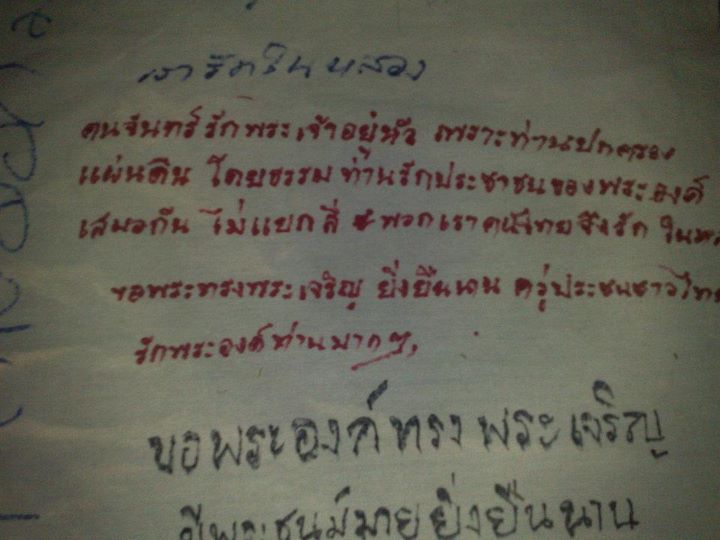 เรารักในหลวง
คนจันทร์รักพระเจ้าอยู่หัว เพราะท่านปกครอง
แผ่นดิน โดยธรรม ท่านรักประชาชนของพระองค์
เสมอกัน ไม่แยกสี พวกเราคนไทยจึงรัก ในหล
ขอพระทรงพระเจริญ ยิ่งยืนนาน คู่ประชนชาวไทย
รักพระองค์ท่านมากๆ,
ขอพระองค์ทรงพระเจริญ
มีพระชนม์มายุยิ่งยืนนาน